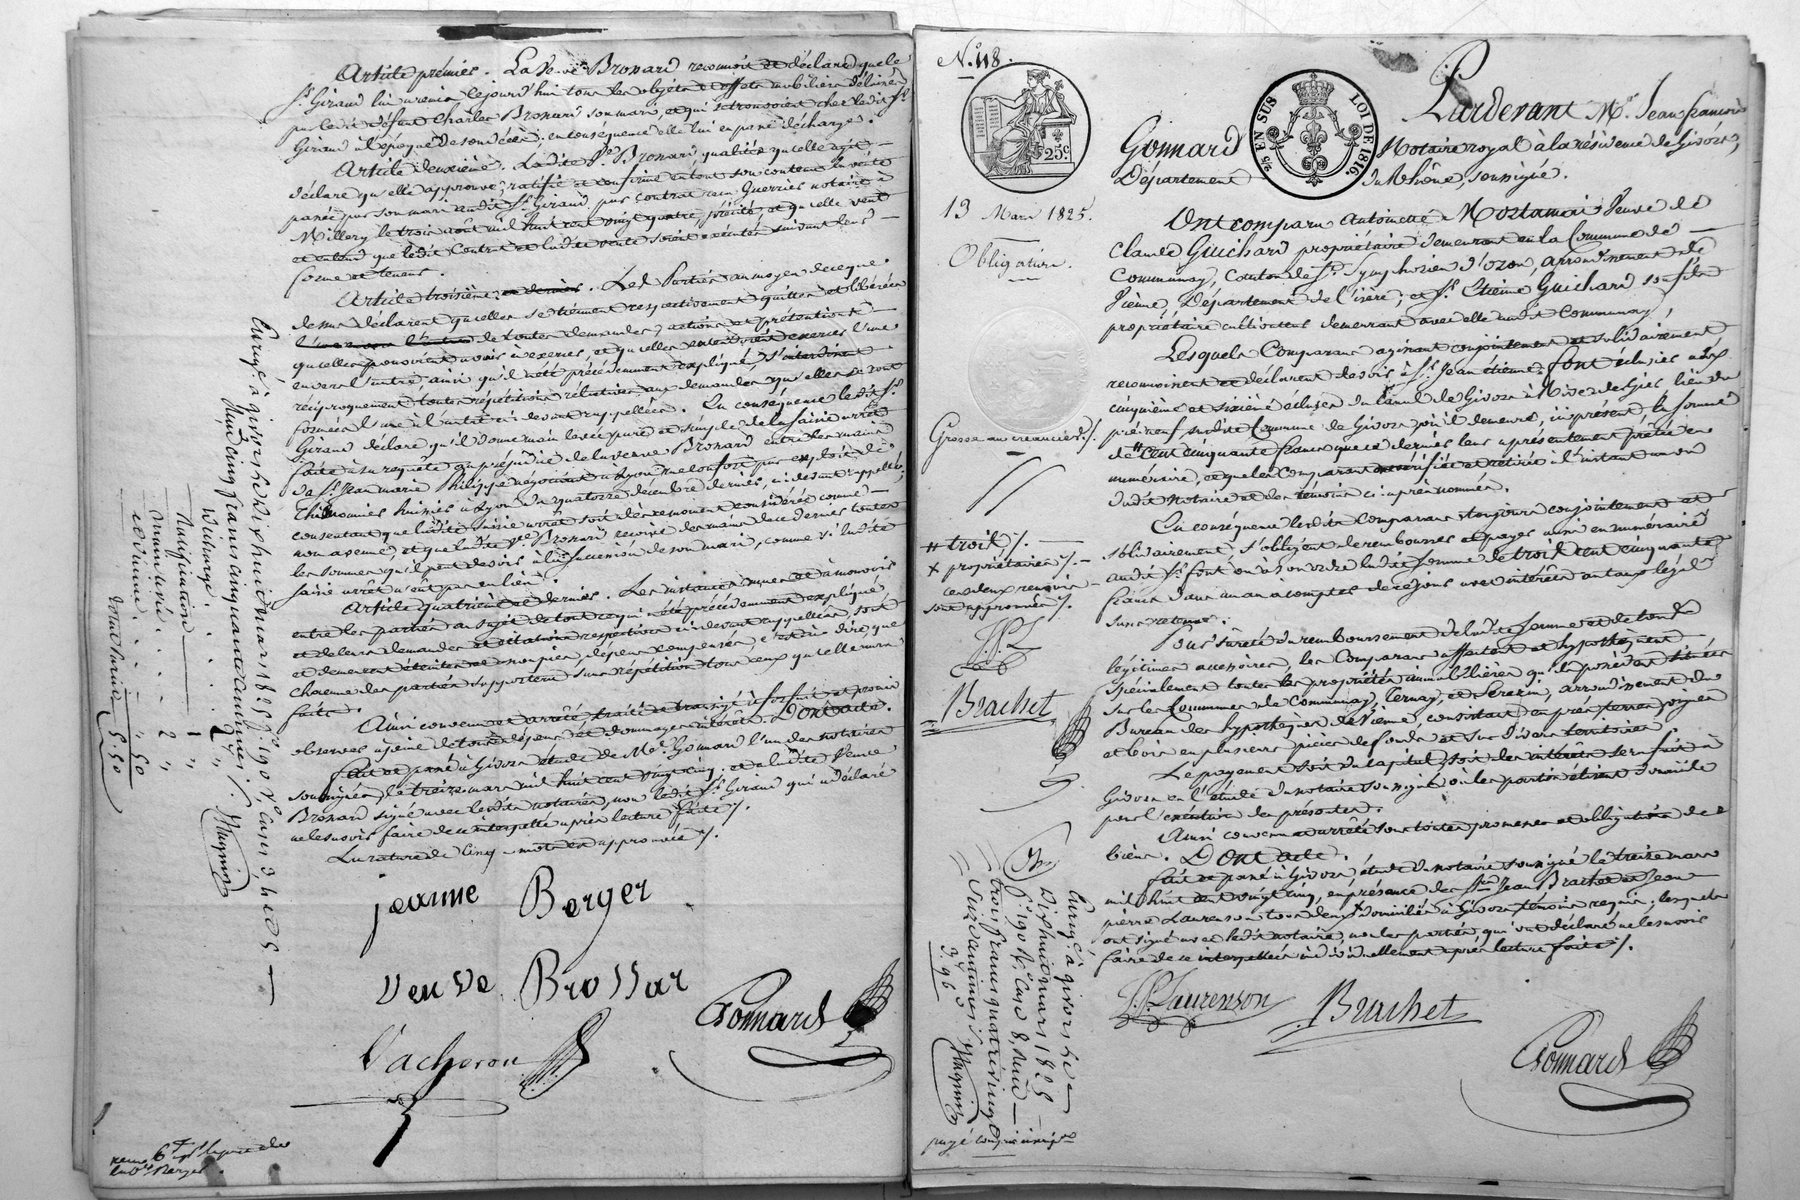 Article premier. La Ve. Brossard reconnoit et déclare que le
Sr. Giraud lui a remis cejourd'hui tous les objets et effets mobiliers délaissés
par ledit défunt Charles Brossard son mari, et qui se trouvoient chez ledit Sr.
Giraud à l'époque de son décès; en conséquence elle lui en passe décharge.
Article deuxième. Ladite Ve. Brossard, qualité qu'elle agit,
déclare qu'elle approuve, ratifie et confirme en tout son contenu la vente
passée par son mari audit Sr. Giraud, par contrat reçu Guerrier notaire à
Millery le trois août mil huit cent vingt quatre, précité, et qu'elle veut
et entend que ledit Contrat et ladite vente soient exécutés suivant leur
forme et teneur.
Article troisième. Les Parties au moyen de ce que
dessus déclarent qu'elles se tiennent respectivement quittes et libérées
de toutes demandes, actions et prétentions
qu'elles pouvoient avoir à exercer, et qu'elles entendoient exercer l'une
envers l'autre ainsi qu'il a été précédemment expliqué, s'interdisent
réciproquement toutes répétitions relatives aux demandes qu'elles se sont
formées l'une à l'autre ci devant rappellées. En conséquence ledit Sr.
Giraud déclare qu'il donne main levée pure et simple de la saisie arrêt
faite à sa requête au préjudice de la veuve Brossard entre les mains
du Sr. Jean marie Philippe négociant à Lyon par exploit de
Thimonnier huissier à Lyon du quatorze décembre dernier, ci devant rappellé,
consentant que ladite saisie arrêt soit dès ce moment considérée comme
non avenue, et que ladite Ve. Brossard reçoive des mains de ce dernier toutes
les sommes qu'il peut devoir à la succession de son mari, comme si ladite
saisie arrêt n'eût pas eu lieu.
Article quatrième et dernier. Les instances mues et à mouvoir
entre les parties au sujet de tout ce qui a été précédemment expliqué,
et de leurs demandes et citations respectives ci devant rappellées, sont
et demeurent éteintes et assoupies, dépens compensés, c'est à dire que
chacune des parties supportera sans répétition tous ceux qu'elle aura
faits.
Ainsi convenu et arrêté, traité et transigé à forfait et promis
observer à peine de tous dépens et dommages intérêts. Dont acte.
Fait et passé à Givors étude de Me. Gonnard l'un des notaires
soussignés, le treize mars mil huit cent vingt cinq. et a ladite Veuve
Brossard signé avec lesdits notaires, non ledit Sr. Giraud qui a déclaré
ne le savoir faire de ce interpellé après lecture faite ./.
La rature de cinq mots est approuvée ./.
jeanne Berger
veuve Brossar
Vacheron
Gonnard
Enregé. à givors le dix huit mars 1825 fo. 190 Ro. Case 3 4 et 5
Reçu cinq francs cinquante centimes ./.
Décharge . . . 2 "
Ratification . . . 1 "
Mainlevée . . . 2 "
et décime . . . " 50
Total 5.50
No. 118.
25 c.
2/5 EN SUS
LOI DE 1816.
13 Mars 1825.
Obligation.
Grosse au créancier ./.
# trois ./.
x propriétaires ./.
ces deux renvois
sont approuvés ./.
J. P. L.
Brachet
Pardevant Me. Jean françois
Gonnard Notaire royal à la résidence de Givors,
Département du Rhône, soussigné.
Ont comparu Antoinette Veuve de
Claude Guichard propriétaire demeurant en la Commune de
Communay, Canton de St. Symphorien d'ozon, arrondissement de
Vienne, Département de l'isère; et Sr. Etienne Guichard son fils
propriétaire cultivateur demeurant avec elle audit Communay,
Lesquels Comparans agissant conjointement et solidairement
reconnoissent et déclarent devoir à Sr. Jean étienne font éclusier aux
cinquième et sixième écluses du Canal de Givors à Rive de Gier lieu du
pré neuf susdite Commune de Givors où il demeure, ici présent, la somme
de # cent cinquante francs que ce dernier leur a présentement prêtée en
numéraire, et que les Comparans ont vérifiée et retirée à l'instant au vu
dudit Notaire et des témoins ci après nommés.
En conséquence lesdits Comparans toujours conjointement et
solidairement, s'obligent de rembourser et payer aussi en numéraire
audit Sr. font ou à son ordre ladite somme de trois cent cinquante
francs dans un an à compter de ce jour avec intérêts au taux légal
sans retenue.
Pour sûreté du remboursement de ladite somme et de tous
légitimes accessoires, les Comparans affectent et hypothèquent
spécialement toutes les propriétés immobilières qu'ils possèdent situées
sur les Communes de Communay, Ternay, et Serezin, arrondissement du
Bureau des hypothèques de Vienne, consistant en prés terres vignes
et bois en plusieurs pièces de fonds et sur divers territoires.
Le payement soit du capital, soit des intérêts sera fait à
Givors en l'étude du notaire soussigné où les parties élisent domicile
pour l'exécution des présentes.
Ainsi convenu et arrêté sous toutes promesses et obligations de
biens. Dont acte.
Fait et passé à Givors, étude du notaire soussigné le treize mars
mil huit cent vingt cinq, en présence des Srs. Jean Brachet et Jean
pierre Laurenson tous deux x domiciliés à Givors témoins requis, lesquels
ont signé avec ledit notaire, non les parties, qui ont déclaré ne le savoir
faire de ce interpellées individuellement après lecture faite ./.
J. P. Laurenson
Brachet
Gonnard
Enregé. à givors le
dix huit mars 1825
fo. 190 Ro. Case 8, Reçu
trois francs quatre vingt
seize centimes ./.
3.96